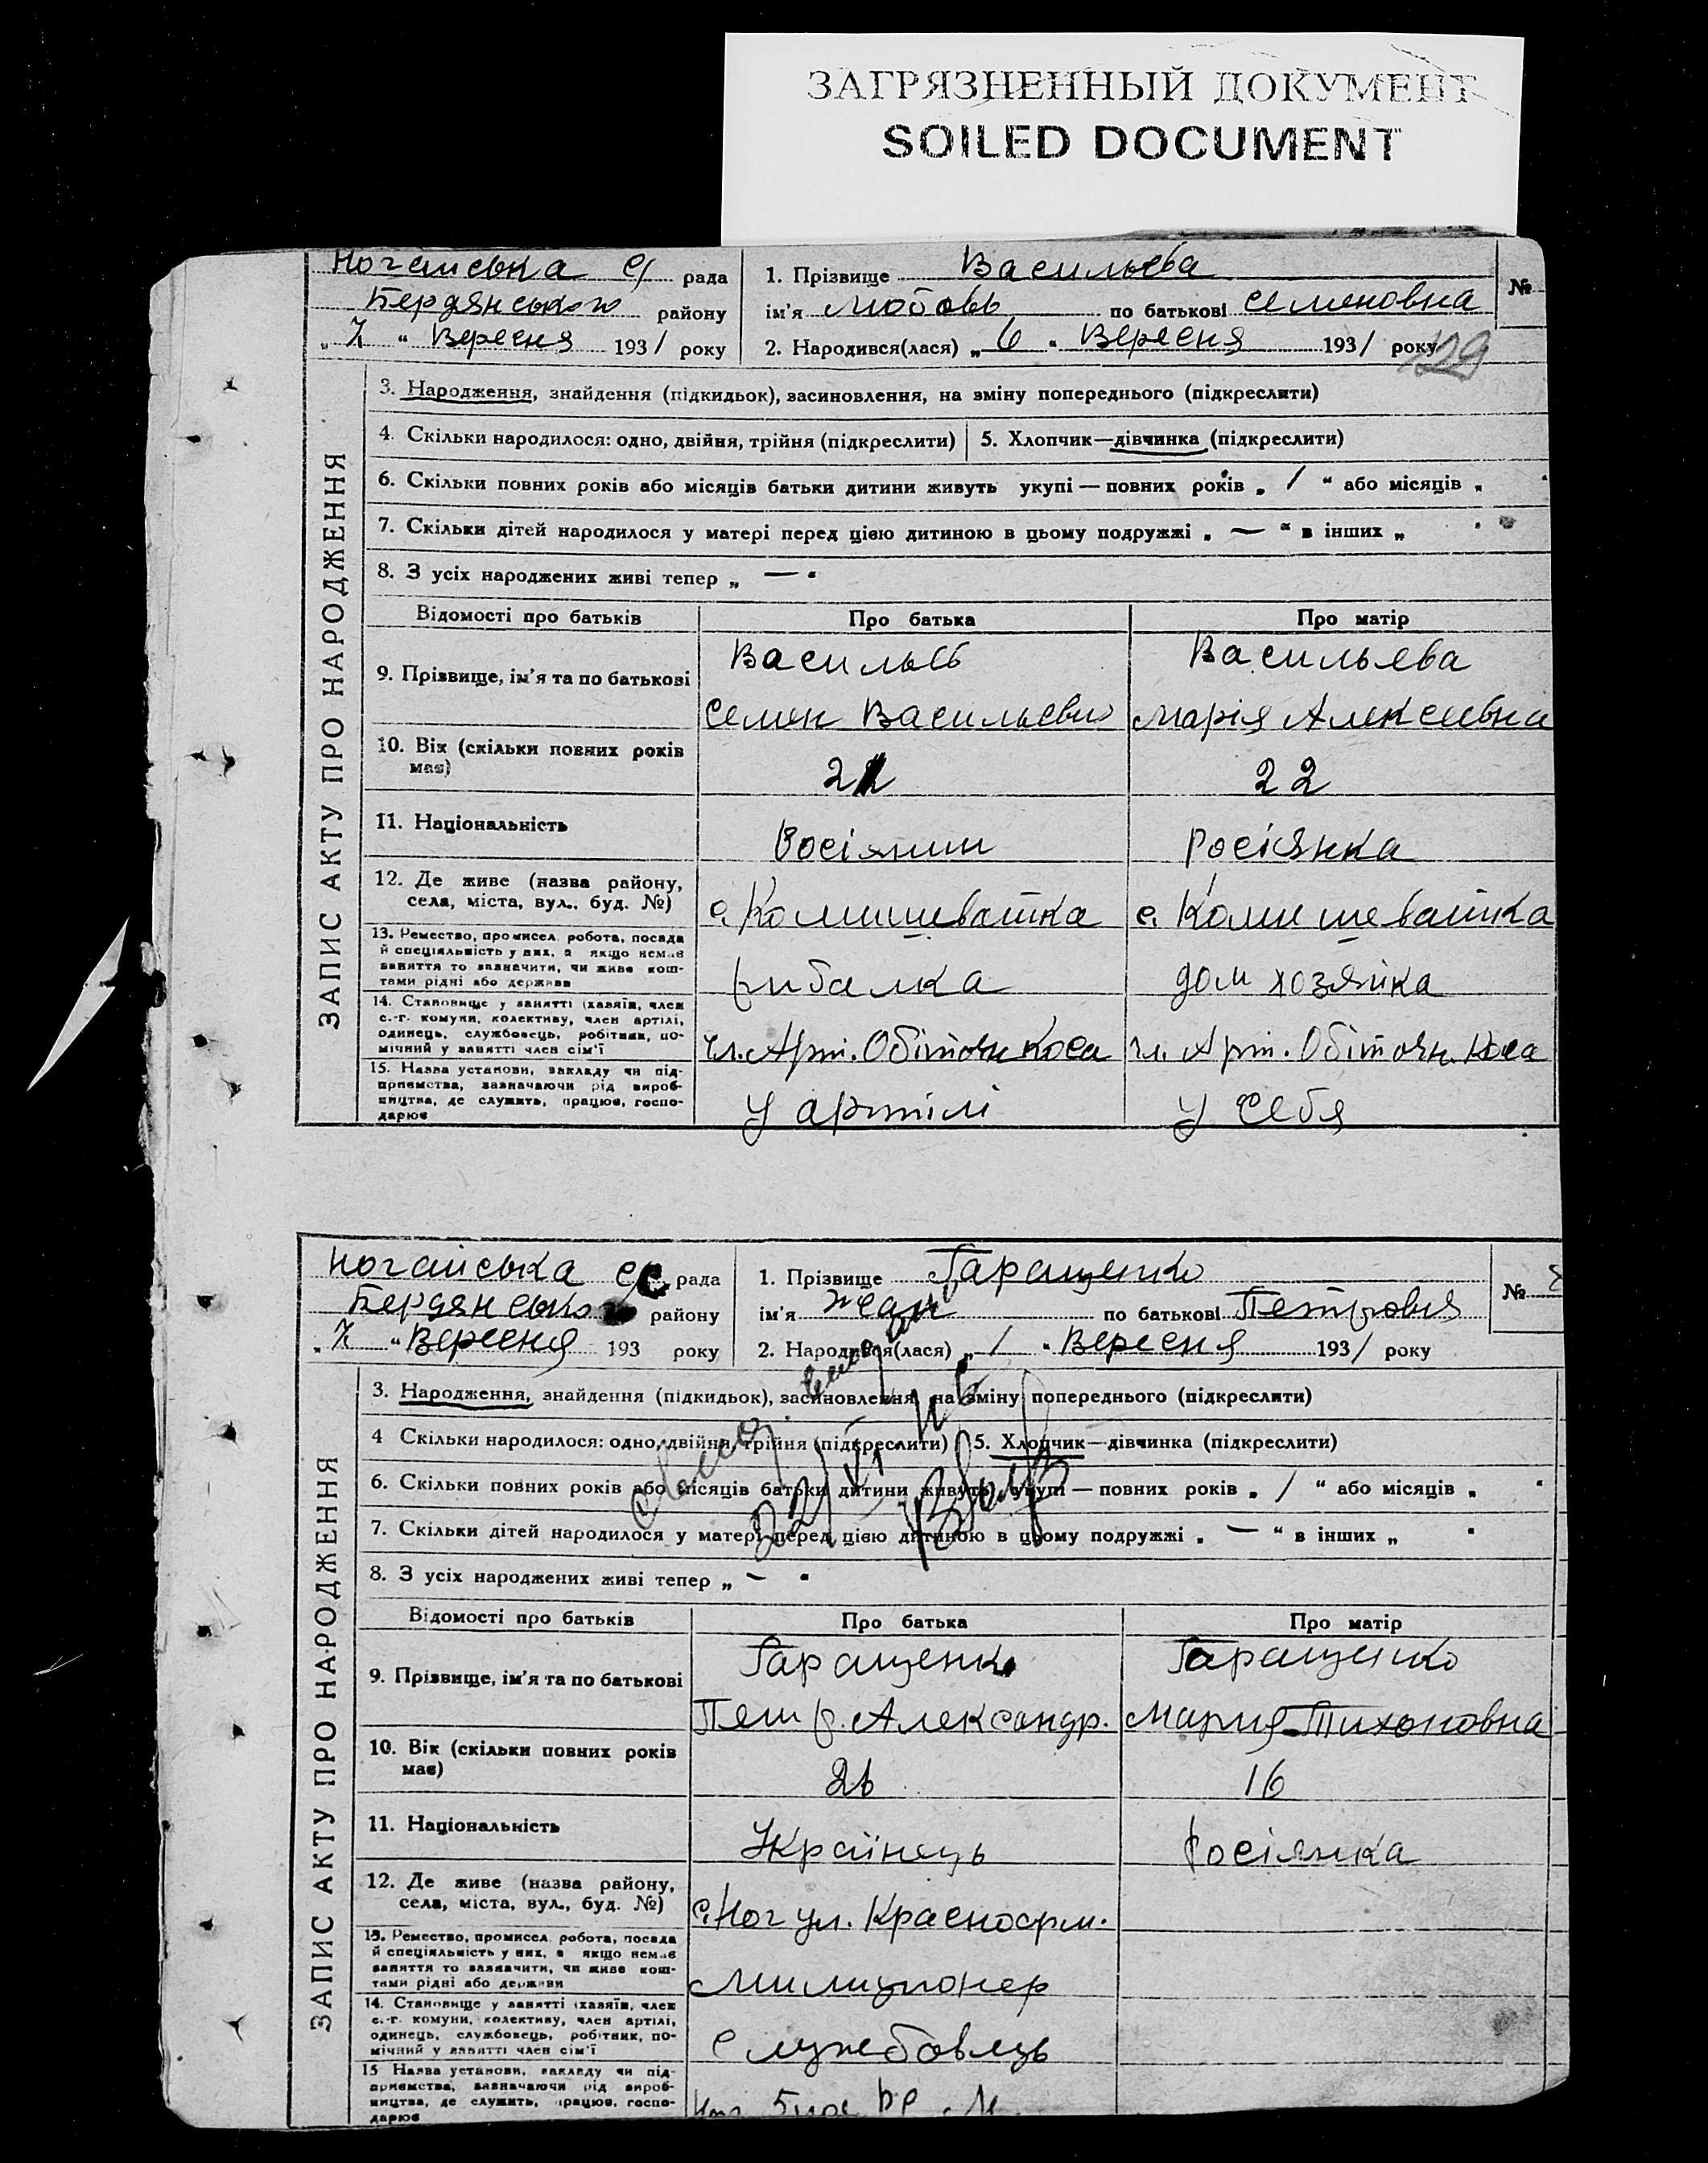 ЗАГРЯЗНЕННЫЙ ДОКУМЕНТ
SOILED DOCUMENT
Ногайська с/ рада
Бердянського району
„ 7 “ Вересня 1931 року
1. Прізвище Васильєва
ім'я Любовь по батькові Семеновна
2. Народився(лася) „ 6 “ Вересня 1931 року
№
129
ЗАПИС АКТУ ПРО НАРОДЖЕННЯ
3. Народження, знайдення (підкидьок), засиновлення, на зміну попереднього (підкреслити)
4. Скільки народилося: одно, двійня, трійня (підкреслити)
5. Хлопчик—дівчинка (підкреслити)
6. Скільки повних років або місяців батьки дитини живуть укупі — повних років „ 1 “ або місяців „ “
7. Скільки дітей народилося у матері перед цією дитиною в цьому подружжі „ — “ в інших „ “
8. З усіх народжених живі тепер „ — “
Відомості про батьків Про батька Про матір
9. Прізвище, ім'я та по батькові
Васильєв
Семен Васильевич
Васильева
Марія Алексеевна
10. Вік (скільки повних років має)
22
22
11. Національність
Росіянин
Росіянка
12. Де живе (назва району,
села, міста, вул., буд. №)
с. Комишеватка
с. Комишеватка
13. Ремество, промисел, робота, посада
й спеціяльність у них, а якщо немає
заняття то зазначити, чи живе кош-
тами рідні або держави
рибалка
дом хозяйка
14. Становище у занятті (хазяїн, член
с.-г. комуни, колективу, член артілі,
одинець, службовець, робітник, по-
мічний у занятті член сім'ї
чл. Арт. Обіточн Коса
чл. Арт. Обіточн. Коса
15. Назва установи, закладу чи під-
приємства, зазначаючи рід вироб-
ництва, де служить, працює, госпо-
дарює
У артілі
У себя
Ногайська с/ рада
Бердянського району
„ 7 “ Вересня 193 року
1. Прізвище Гаращенко
ім'я Жан по батькові Петровия
2. Народився(лася) „ 1 “ Вересня 1931 року
№
ЗАПИС АКТУ ПРО НАРОДЖЕННЯ
3. Народження, знайдення (підкидьок), засиновлення, на зміну попереднього (підкреслити)
4 Скільки народилося: одно, двійня, трійня (підкреслити)
5. Хлопчик—дівчинка (підкреслити)
6. Скільки повних років або місяців батьки дитини живуть укупі — повних років „ 1 “ або місяців „ “
7. Скільки дітей народилося у матері перед цією дитиною в цьому подружжі „ — “ в інших „ “
8. З усіх народжених живі тепер „ — “
Відомості про батьків Про батька Про матір
9. Прізвище, ім'я та по батькові
Гаращенко
Петр. Александр.
Гаращенко
Мария Тихоновна
10. Вік (скільки повних років
має)
26
16
11. Національність
Українець
Росіянка
12. Де живе (назва району,
села, міста, вул., буд. №)
с. Ног ул. Красноарм.
13. Ремество, промисел, робота, посада
й спеціяльність у них, а якщо немає
заняття то зазначити, чи живе кош-
тами рідні або держави
Милиционер
14. Становище у занятті (хазяїн, член
с.-г. комуни, колективу, член артілі,
одинець, службовець, робітник, по-
мічний у занятті член сім'ї
Службовець
15 Назва установи, закладу чи під-
приємства, зазначаючи рід вироб-
ництва, де служить, працює, госпо-
дарює